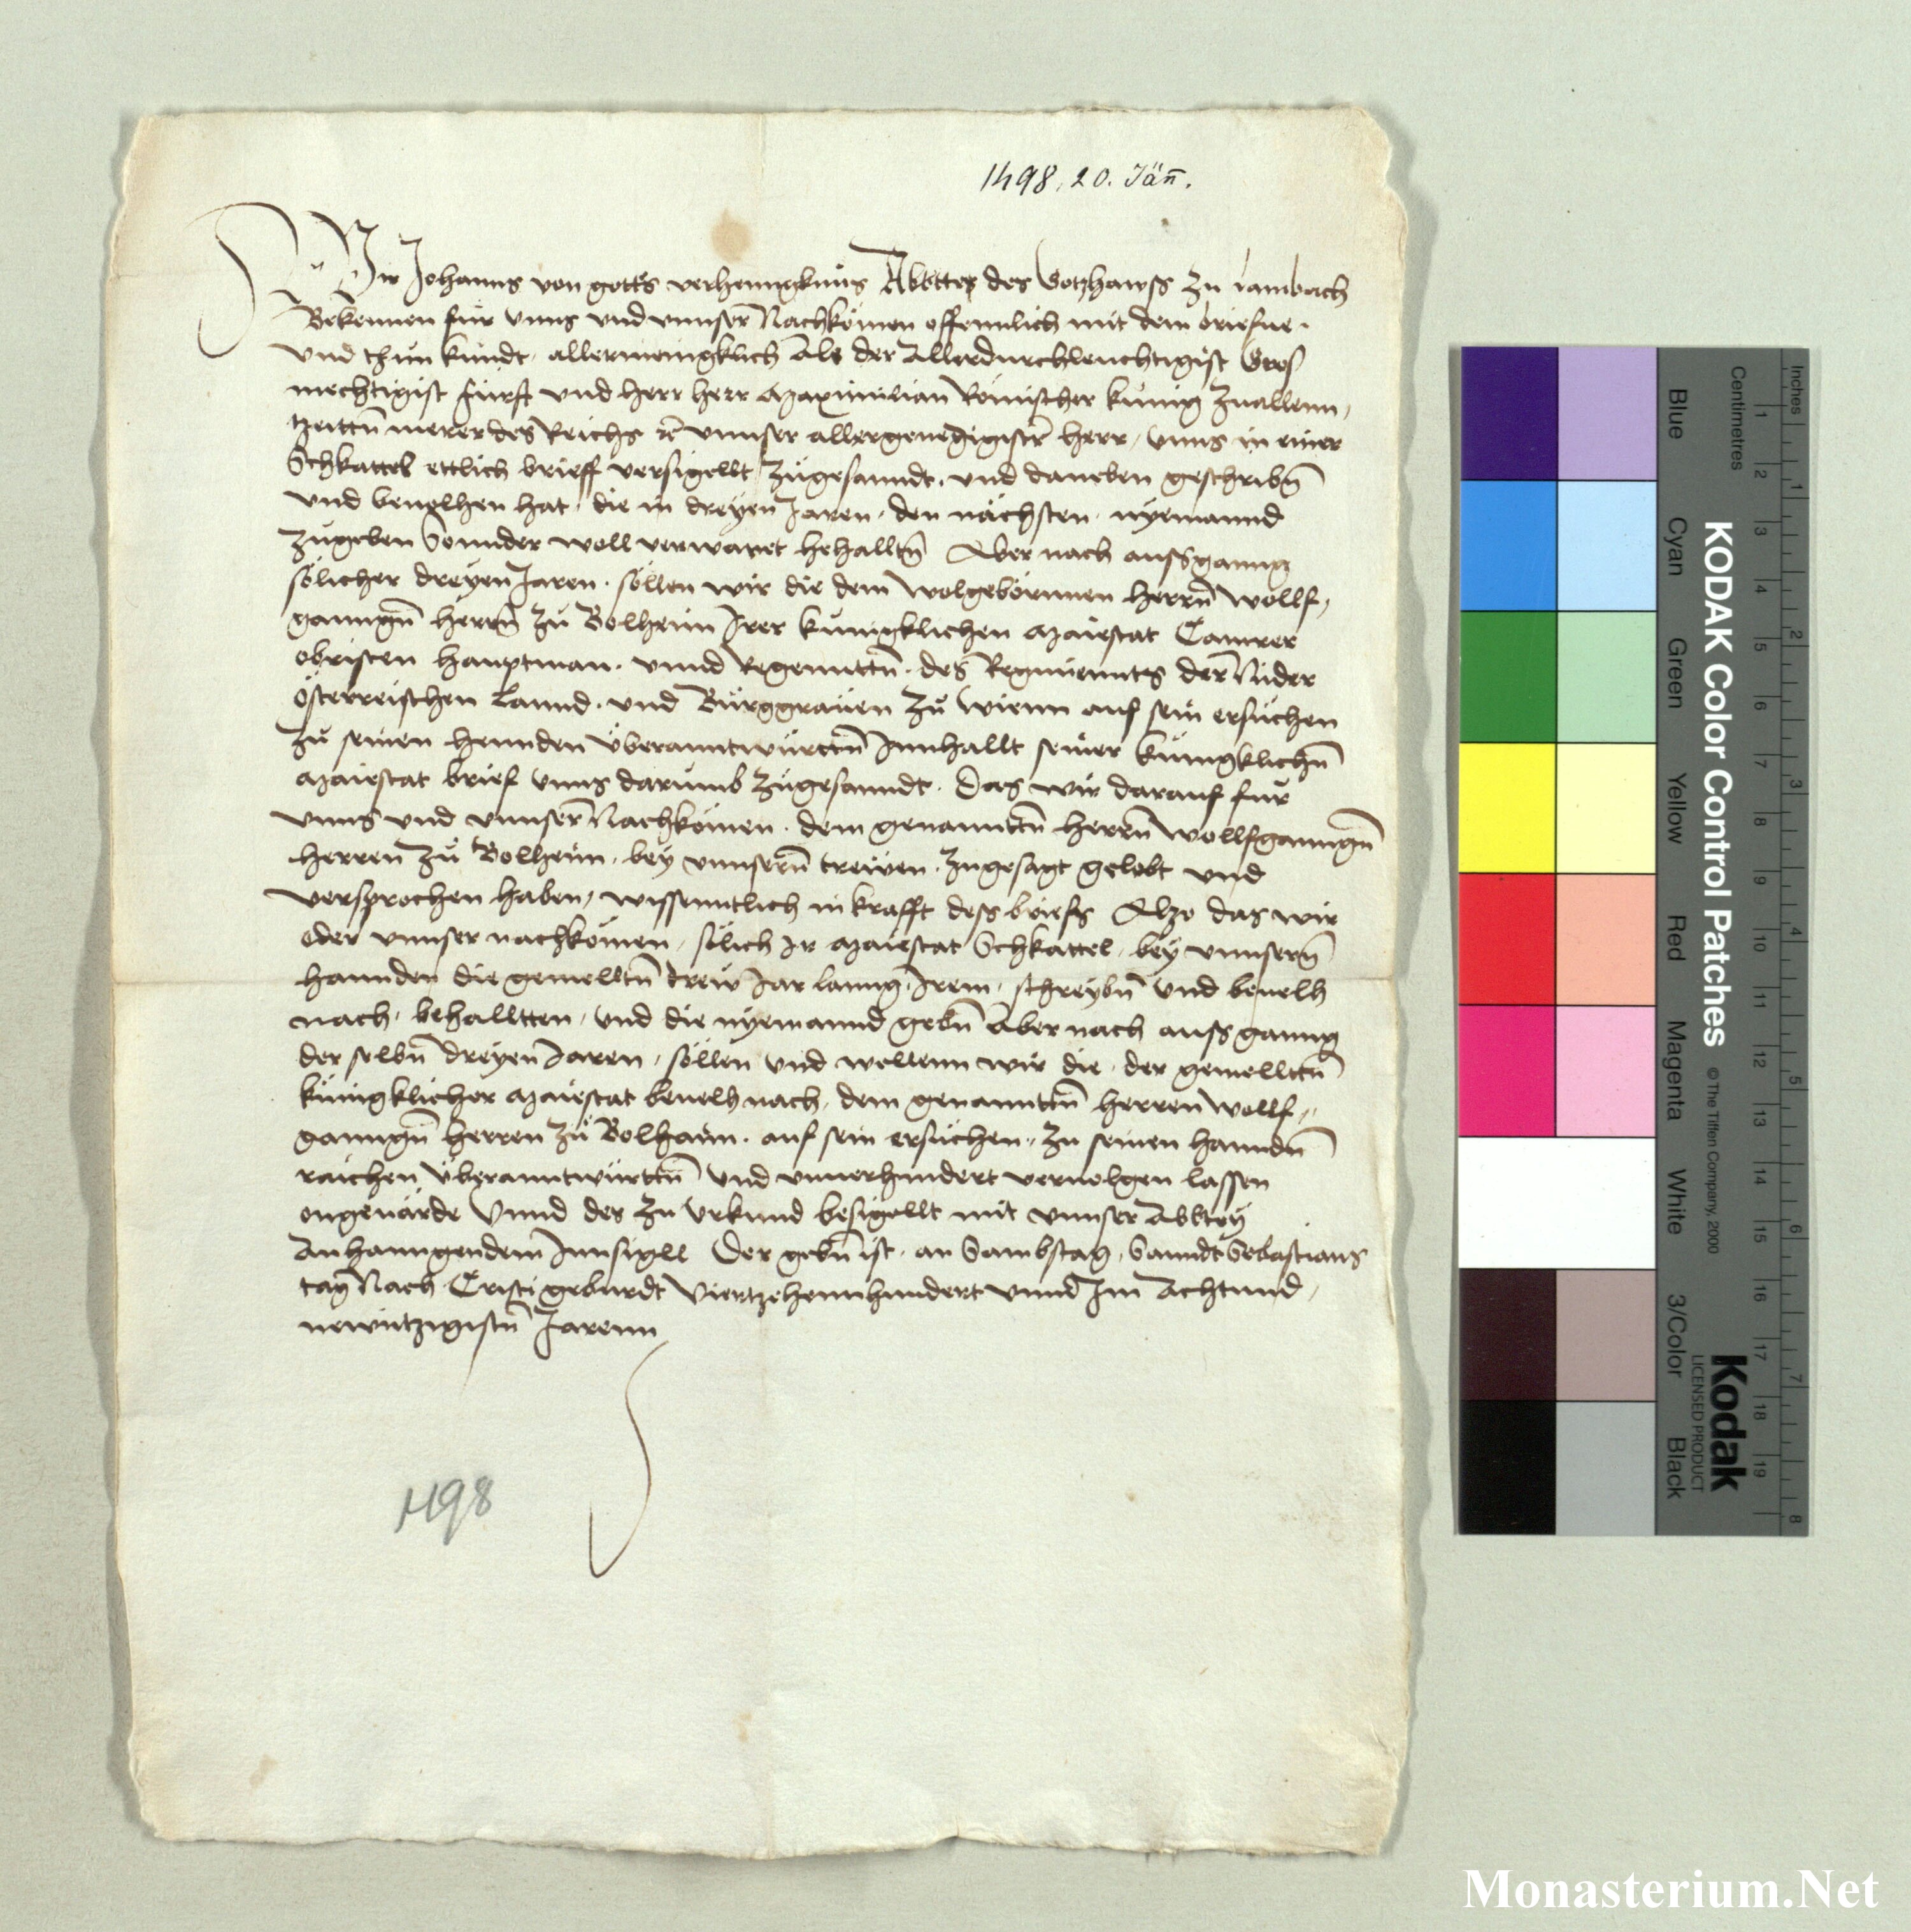 1498, 20. Jän̄.
Wir Johanns von gotts verhenngknüs Abbtte des Gotzhawss zu Lambach
Bekennen für vnns vnd vnnser Nachkömen offennlich mit dem briefue.
vnd thun kundt, allermenigklich Als der Allerdurchleuchtigist Gros
mechtigist fürst vnd herr herr Maximilian Römischer künig zuallenn,
tzeittn̄ merer des Reichs rc̄ vnnser allergenedigister herr, vnns in einer
Schkattel ettlich brieff versigellt zugesanndt, vnd daneben geschribn̄
vnd beuolhen hat, die in dreyen Jaren, den nächsten, nyemannd
zugeben Sonnder woll verwaret behalltn̄ Aber nach aussganng
sölicher dreyen Jaren. söllen wir die dem wolgebornnen herrn̄ wollf,
ganngn̄ herrn̄ zu Bolheim Irer kunigklichen Maiestat Camrer
obristen hauptman. vnnd Regennttn̄. des Regimennts der Nider
österreischen Lannd. vnd Burggrauen zu wienn auf sein ersuchen
zu seinen hennden überanntwurttn̄ Innhallt seiner künigklichn̄
Maiestat brief vnns darumb zugesanndt. Das wir darauf für
vnns vnd vnnser Nachkömen. dem genannttn̄ herrn̄ wollfganngn̄
herren zu Bolheim. bey vnnsern̄ trewen. zugesagt gelobt vnd
versprochen haben, wissenntlich in krafft dess briefs Also das wir
oder vnnser nachkömen, sölich Ir Maiestat Schkattel, bey vnnsern̄
hannden die gemelltn̄ drew Jar lanng, Irem, schreybn̄ vnd beuelh
nach, behalltten, vnd die nyemannd gebn̄ Aber nach auss ganng
der selbn̄ dreyen Jaren, söllen vnd wellenn wir die, der gemellttn̄
künigklicher Maiestat beuelh nach, dem genannttn̄ herren wollf,,
ganngn̄ herren zu Bolhaim. auf sein ersuchen, zu seinen hanndn̄
raichen überanntwurttn̄ vnd vnuerhindert veruolgen lassen
ongeuärde Vnnd des zu vrkund besigellt mit vnnser Abbtey
Anhanngendem Innsigll Der gebn̄ ist, an Sambstag, Sanndt Sebastians
tag Nach Cristi geburdt Viertzehennhundert vnnd Im Achtund,
newntzigistn̄ Jarenn
1498
KODAK Color Control Patches
© The Tiffen Company, 2000
Kodak
LICENSED PRODUCT
Blue Cyan Green Yellow Red Magenta White 3/Color Black
Centimetres
1 2 3 4 5 6 7 8 9 10 11 12 13 14 15 16 17 18 19
Inches
1 2 3 4 5 6 7 8
Monasterium.Net